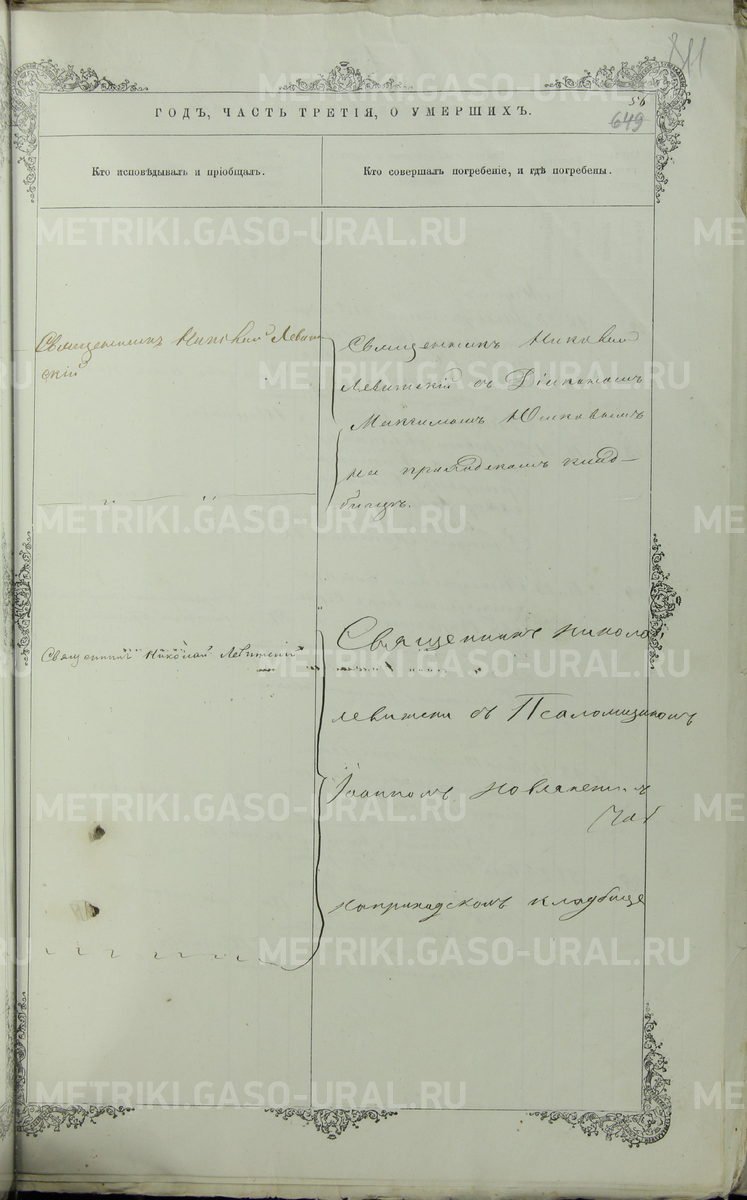 811
56
649
ГОДЪ, ЧАСТЬ ТРЕТІЯ, О УМЕРШИХЪ.
Кто исповѣдывалъ и пріобщалъ.
Кто совершалъ погребеніе, и гдѣ погребены.
Священникъ Николай Левит
скій
Священникъ Николай
Левитскій съ Діакономъ
Максимомъ
на приходскомъ клад-
бищѣ.
Священникъ Николай Левитскій
Священникъ Николай
Левитскій съ Псаломщикомъ
Іоанномъ
наприходскомъ кладбище
METRIKI.GASO-URAL.RU